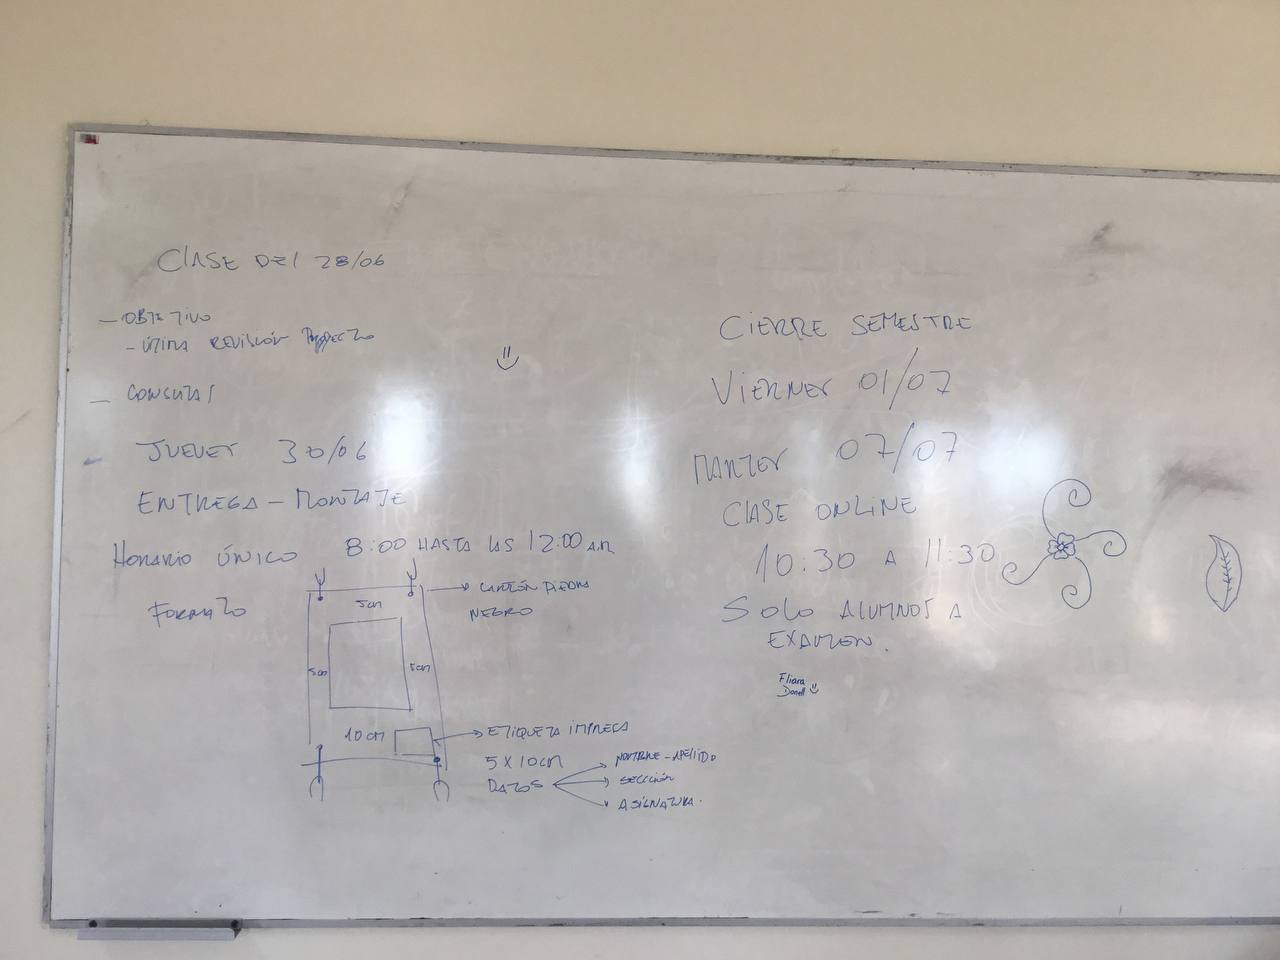 CLASE DEL 28/06
- OBJETIVO
- ÚLTIMA REVISIÓN PROYECTO
- CONSULTAS
- JUEVES 30/06
ENTREGA - MONTAJE
HORARIO ÚNICO 8:00 HASTA LAS 12:00 A.M.
FORMATO
CARTÓN PIEDRA
NEGRO
5cm
5cm
5cm
10cm
ETIQUETA IMPRESA
5 X 10cm
DATOS
NOMBRE - APELLIDO
SECCIÓN
ASIGNATURA.
CIERRE SEMESTRE
VIERNES 01/07
MARTES 07/07
CLASE ONLINE
10:30 A 11:30
SOLO ALUMNOS A
EXAMEN.